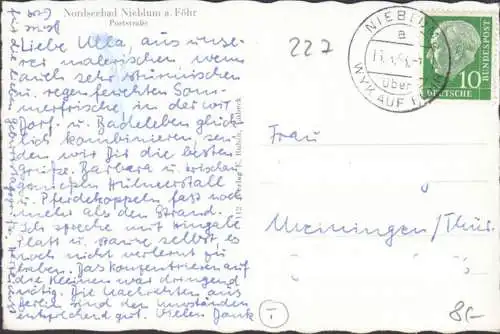 Nordseebad Nieblum a. Föhr
Poststraße
Liebe Ulla, aus unse-
rer malerischen, wenn
auch sehr stürmischen
u. regenfeuchten Som-
merfrische, in der wir
Dorf- u. Badeleben glück-
lich kombinieren, sen-
den wir Dir die besten
Grüße. Barbara u.
genießen Hühnerstall
u. Pferdekoppeln fast noch
mehr als den Strand.
Ich spreche mit Hingabe
Platt u. staune selbst, es
noch nicht verlernt zu
haben. Das Konzentrieren auf
die Kleinen war dringend
nötig. Die Nachrichten aus
Berlin sind den Umständen
entsprechend gut. Vielen Dank
227
NIEBLUM
a
über
WYK AUF FÖHR
10
DEUTSCHE BUNDESPOST
Frau
Meiningen/Thür.
8.-